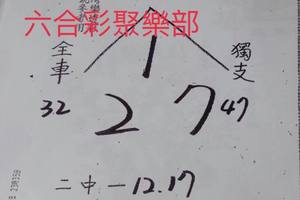 六合彩聚樂部
全車
獨支
32 2 7 47
二中一12.17